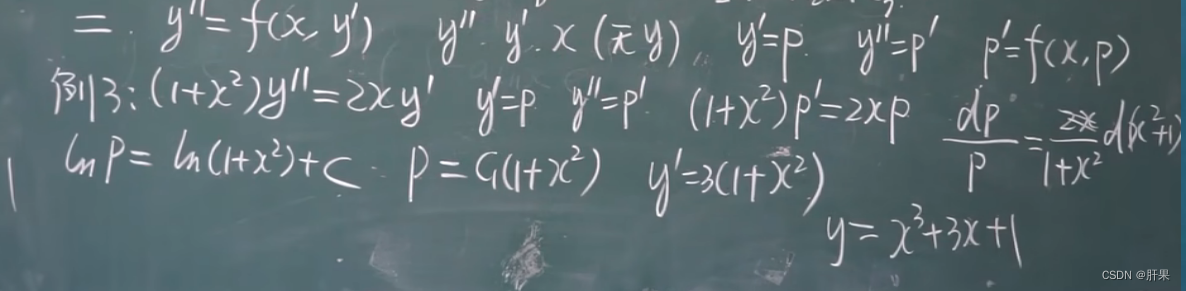 二. y''=f(x,y') y'' y'. x (无y) y'=p. y''=p' p'=f(x,p)
例3:(1+x²)y''=2xy' y'=p y''=p' (1+x²)p'=2xp dp/p = 1/(1+x²) d(x²+1)
ln p= ln(1+x²)+C p=C₁(1+x²) y'=3(1+x²)
y=x³+3x+1
CSDN @肝果